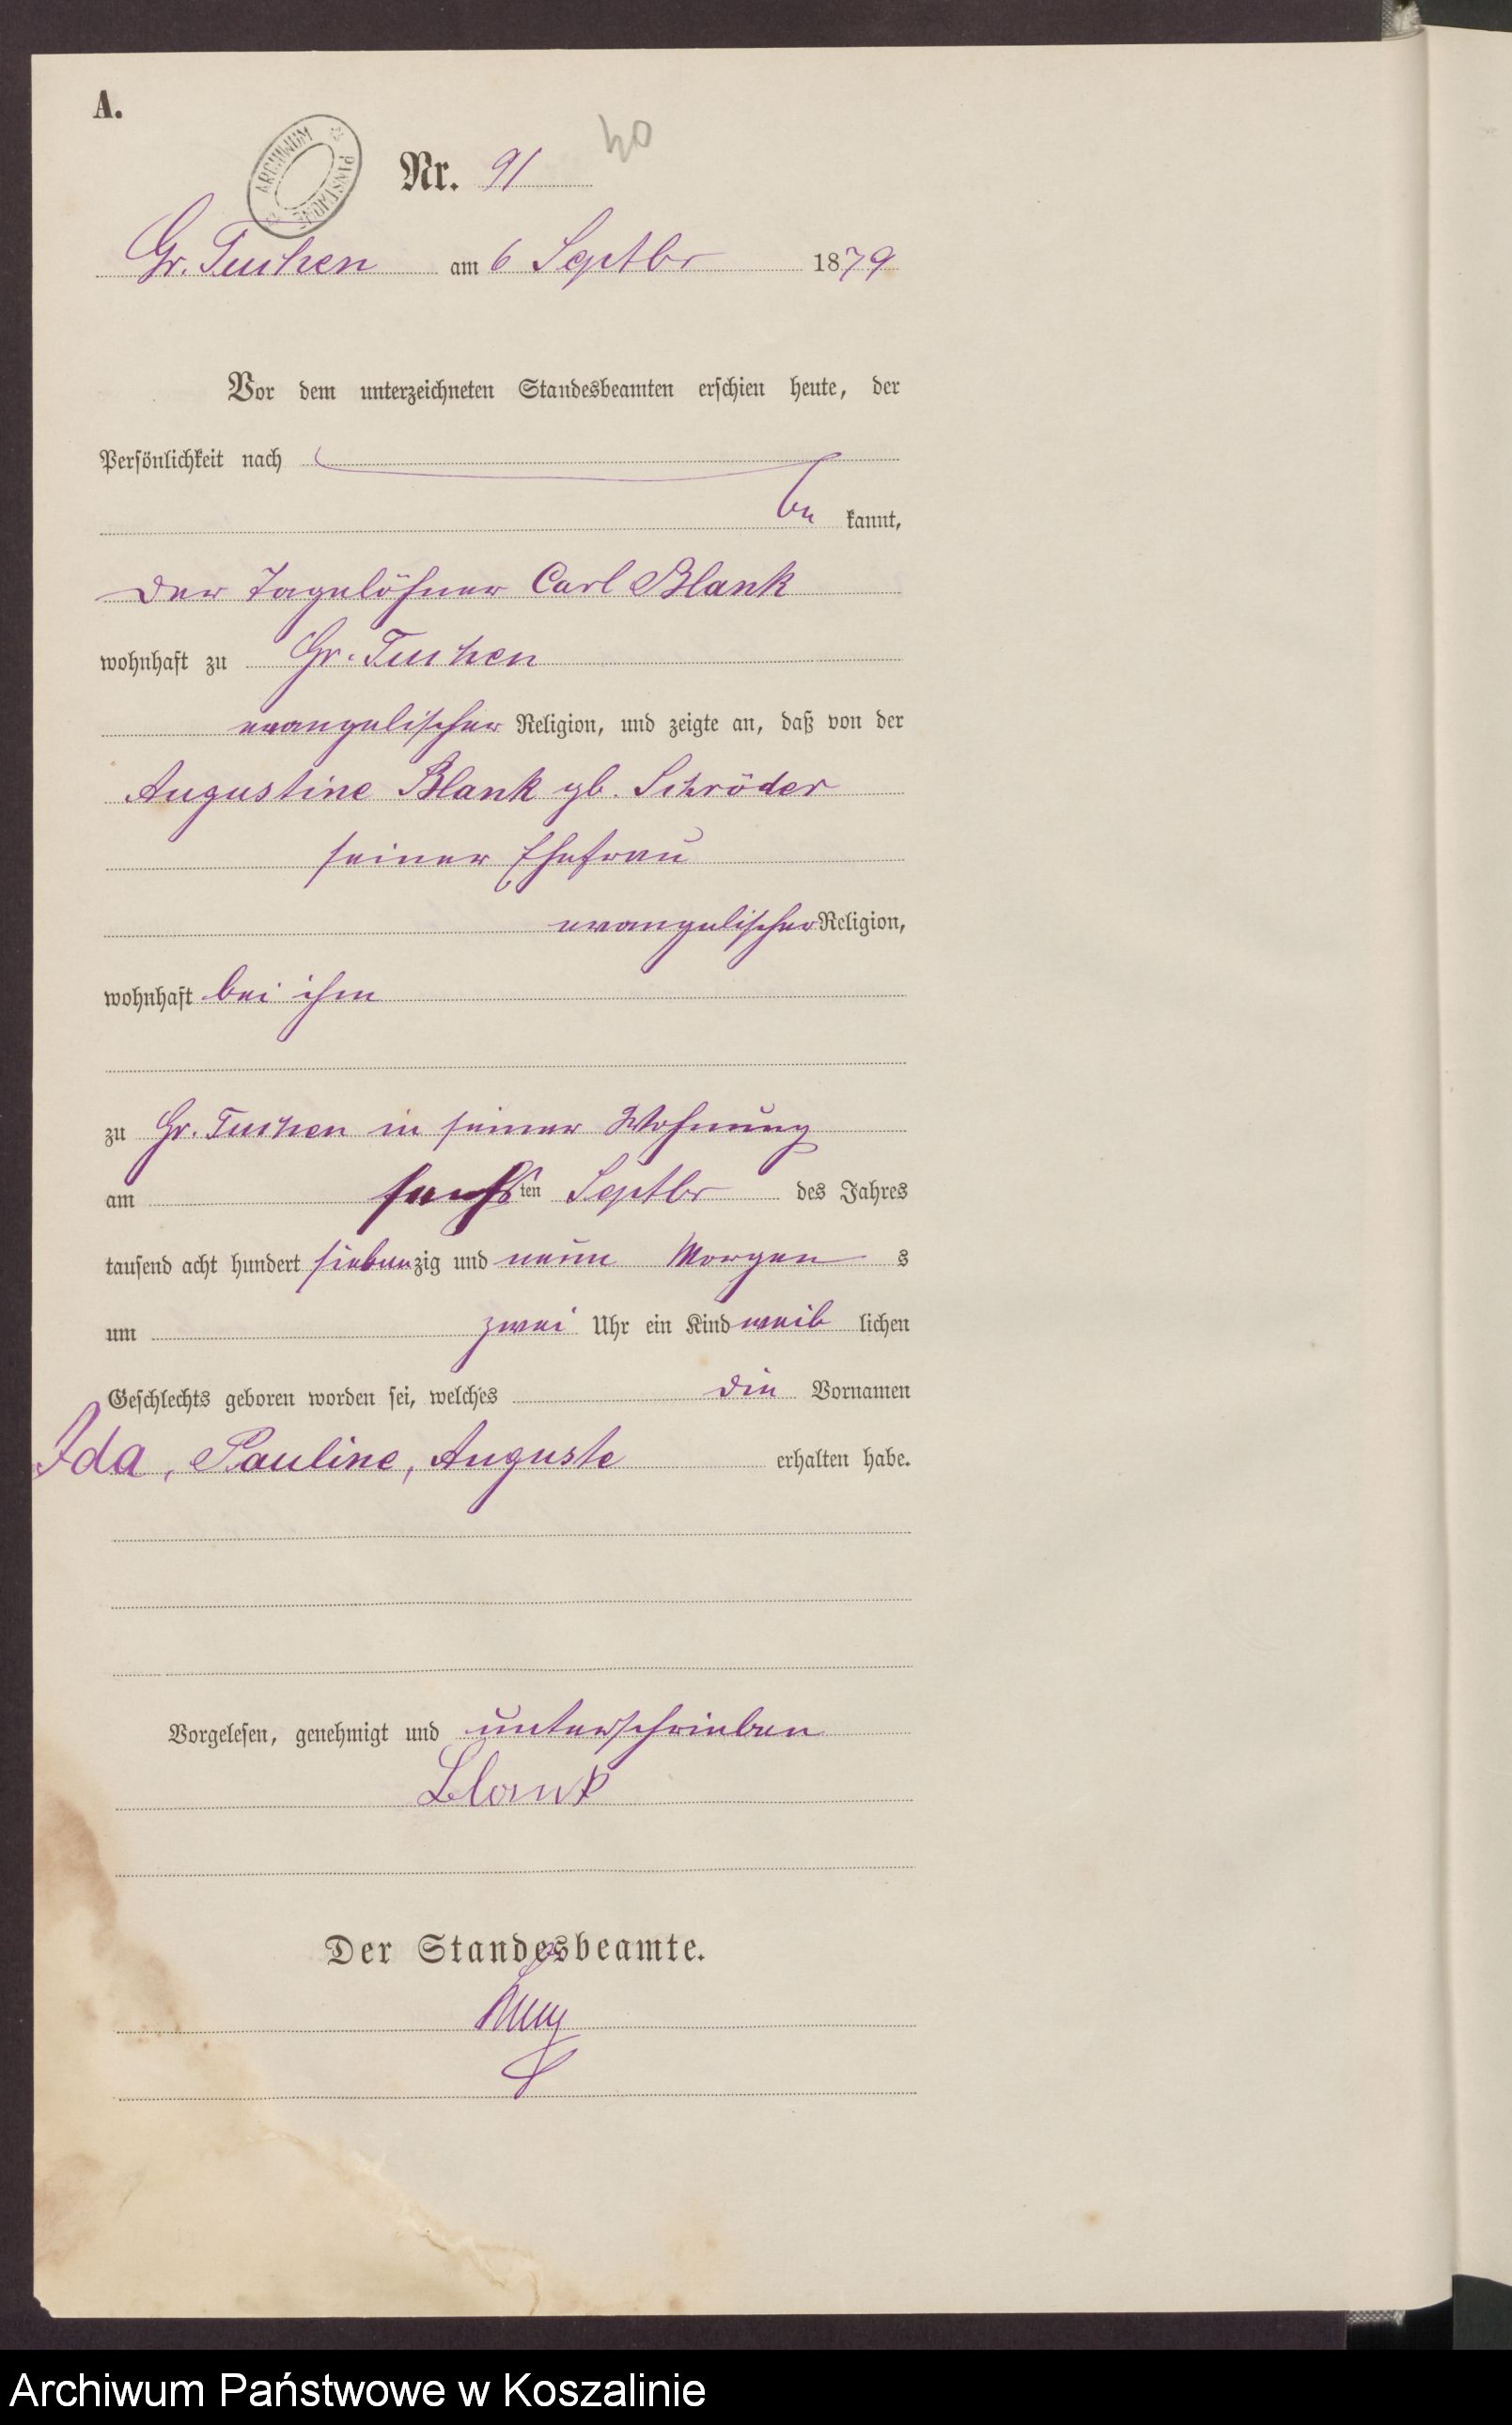 A.
ARCHIWUM PAŃSTWOWE
40
Nr. 91
Gr. Tuchen am 6 Septbr 1879
Vor dem unterzeichneten Standesbeamten erschien heute, der
Persönlichkeit nach
be kannt,
der Tagelöhner Carl Blank
wohnhaft zu Gr. Tuchen
evangelischer Religion, und zeigte an, daß von der
Augustine Blank gb. Schröder
seiner Ehefrau
evangelischer Religion,
wohnhaft bei ihm
zu Gr. Tuchen in seiner Wohnung
am ten Septbr des Jahres
tausend acht hundert siebenzig und neun Morgen s
um zwei Uhr ein Kind weib lichen
Geschlechts geboren worden sei, welches die Vornamen
Ida, Pauline, Auguste erhalten habe.
Vorgelesen, genehmigt und unterschrieben
Blank
Der Standesbeamte.
Archiwum Państwowe w Koszalinie